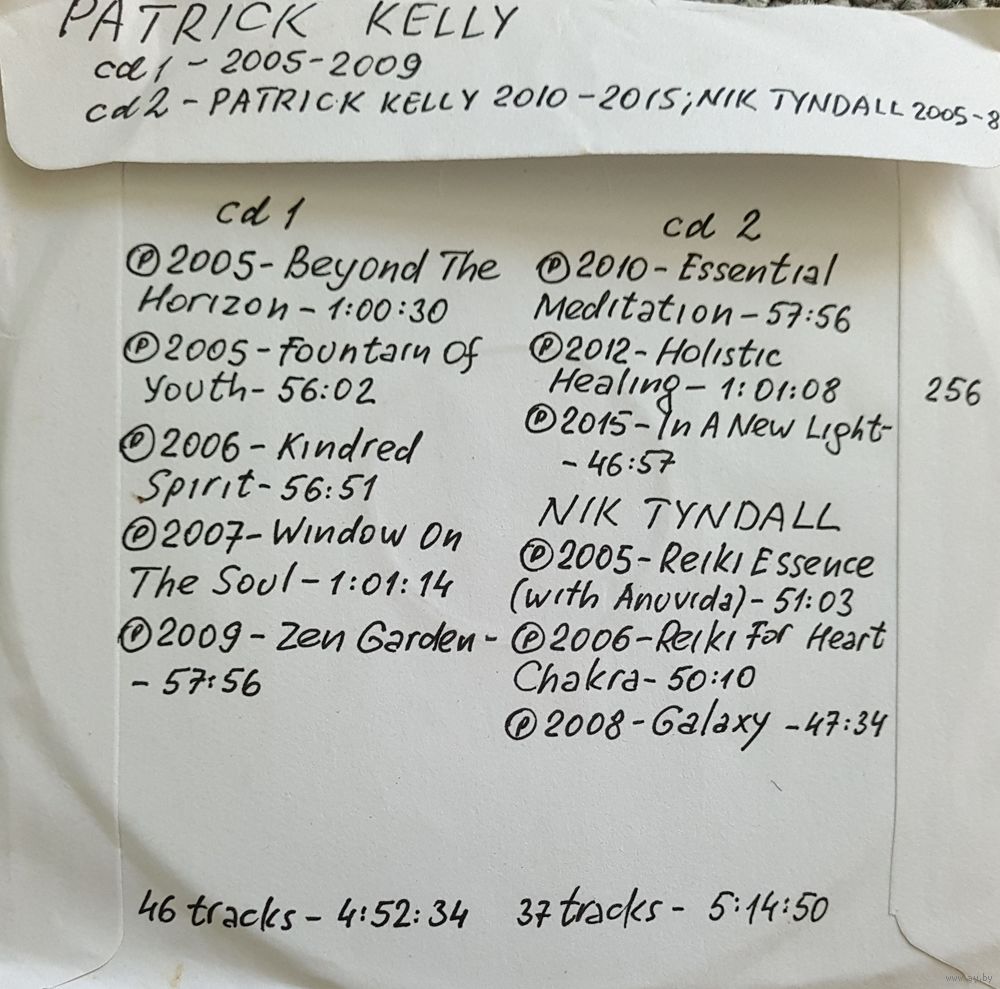 PATRICK KELLY
cd 1 - 2005-2009
cd 2 - PATRICK KELLY 2010-2015; NIK TYNDALL 2005-8
cd 1
Ⓟ2005- Beyond The
Horizon - 1:00:30
Ⓟ2005- Fountain Of
Youth- 56:02
Ⓟ2006- Kindred
Spirit- 56:51
Ⓟ2007- Window On
The Soul - 1:01:14
Ⓟ2009- Zen Garden-
- 57:56
46 tracks - 4:52:34
cd 2
Ⓟ2010- Essential
Meditation- 57:56
Ⓟ2012- Holistic
Healing- 1:01:08
Ⓟ2015- In A New Light-
- 46:57
NIK TYNDALL
Ⓟ2005- Reiki Essence
(with Anuvida)- 51:03
Ⓟ2006- Reiki For Heart
Chakra- 50:10
Ⓟ2008- Galaxy - 47:34
37 tracks - 5:14:50
256
www.ay.by